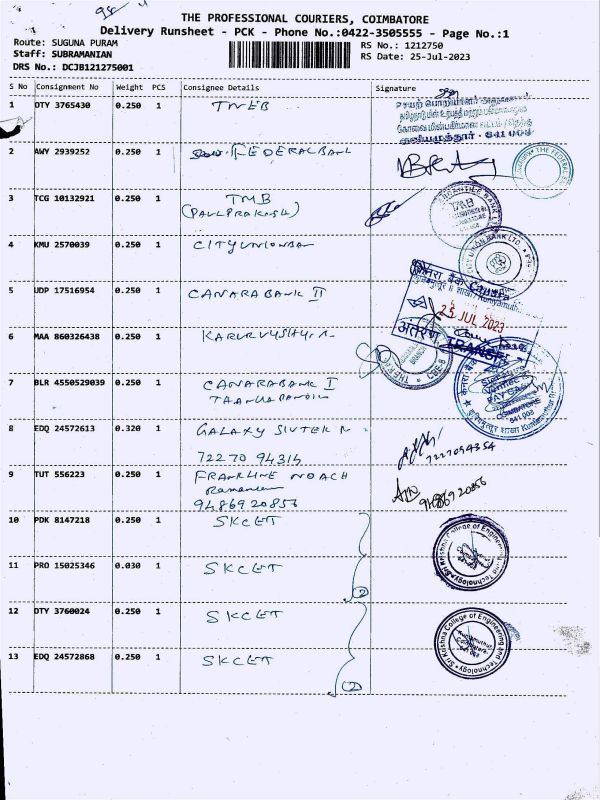 THE PROFESSIONAL COURIERS, COIMBATORE
Delivery Runsheet - PCK - Phone No.:0422-3505555 - Page No.:1
Route: SUGUNA PURAM
Staff: SUBRAMANIAN
DRS No.: DCJB121275001
RS No.: 1212750
RS Date: 25-Jul-2023
S No Consignment No Weight PCS Consignee Details Signature
1 DTY 3765430 0.250 1 TNEB
641 008
2 AWY 2939252 0.250 1 FEDERAL BANK
THE FEDERAL
3 TCG 10132921 0.250 1 TMB
(PAULPRAKASH)
4 KMU 2570039 0.250 1 CITYUNIONBAN
CITY UNION BANK LTD.
5 UDP 17516954 0.250 1 CANARA BANK II
25 JUL 2023
अंतरण TRANSFER
6 MAA 860326438 0.250 1 KARURVYSHYA
7 BLR 4550529039 0.250 1 CANARABANK I
COIMBATORE
641 008
8 EDQ 24572613 0.320 1 GALAXY
72270 94314
9 TUT 556223 0.250 1 FRANKLINE NOACH
94869 20856
9486920856
10 PDK 8147218 0.250 1 SKCET
Sri Krishna College of Engineering and Technology
11 PRO 15025346 0.030 1 SKCET
2
12 DTY 3760024 0.250 1 SKCET
Sri Krishna College of Engineering and Technology
Kuniamuthur
Coimbatore
641 008
13 EDQ 24572868 0.250 1 SKCET
2